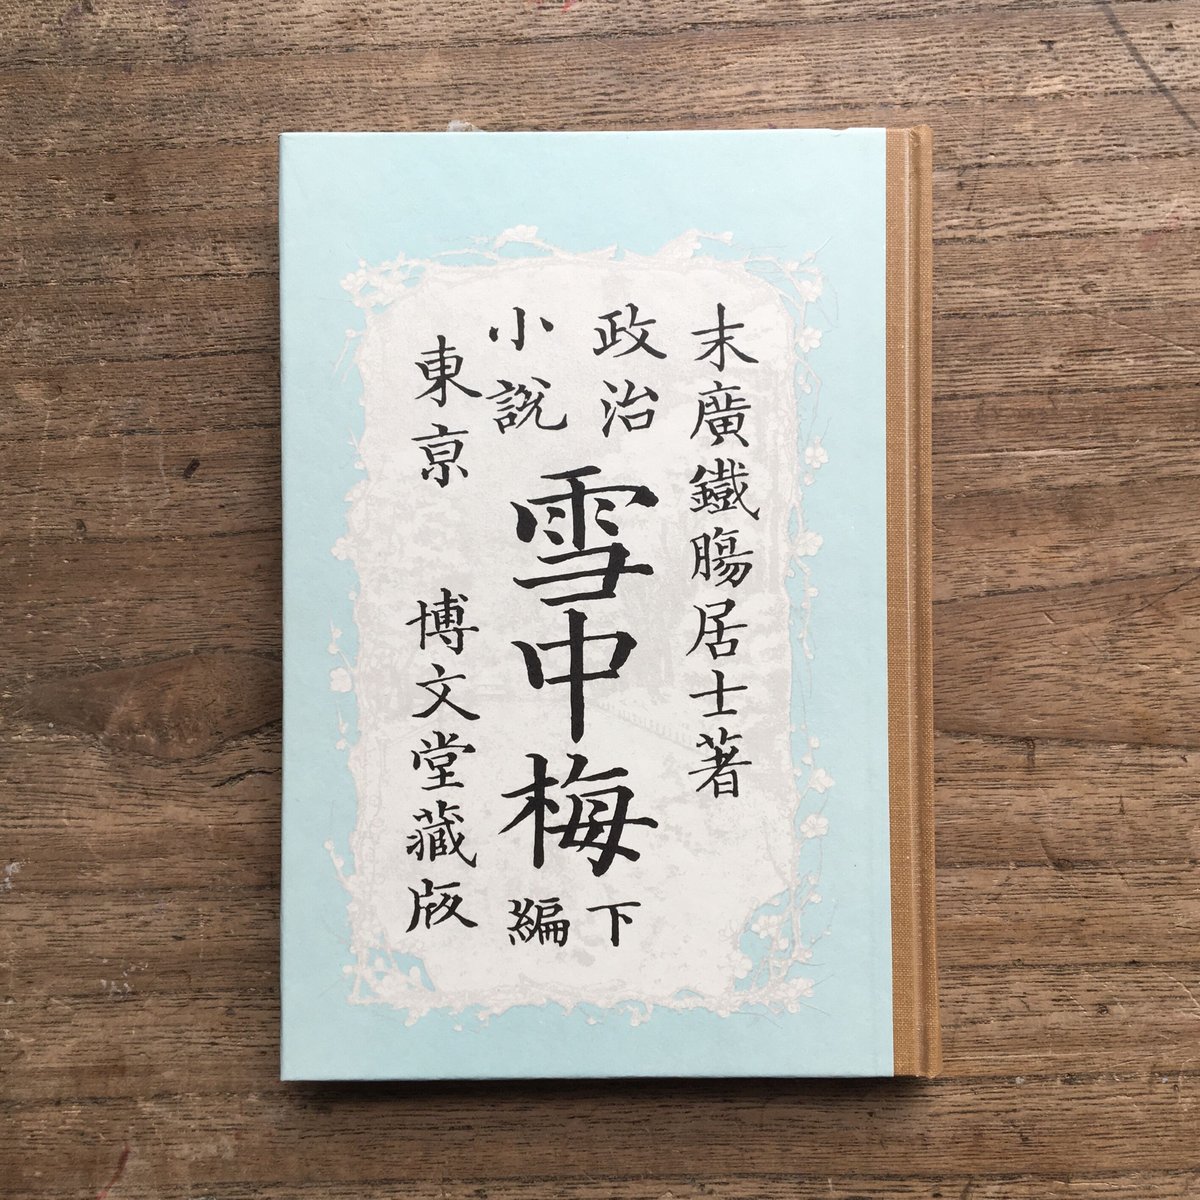 末廣鐵膓居士著
政治
小説
雪中梅
下
編
東京 博文堂藏版